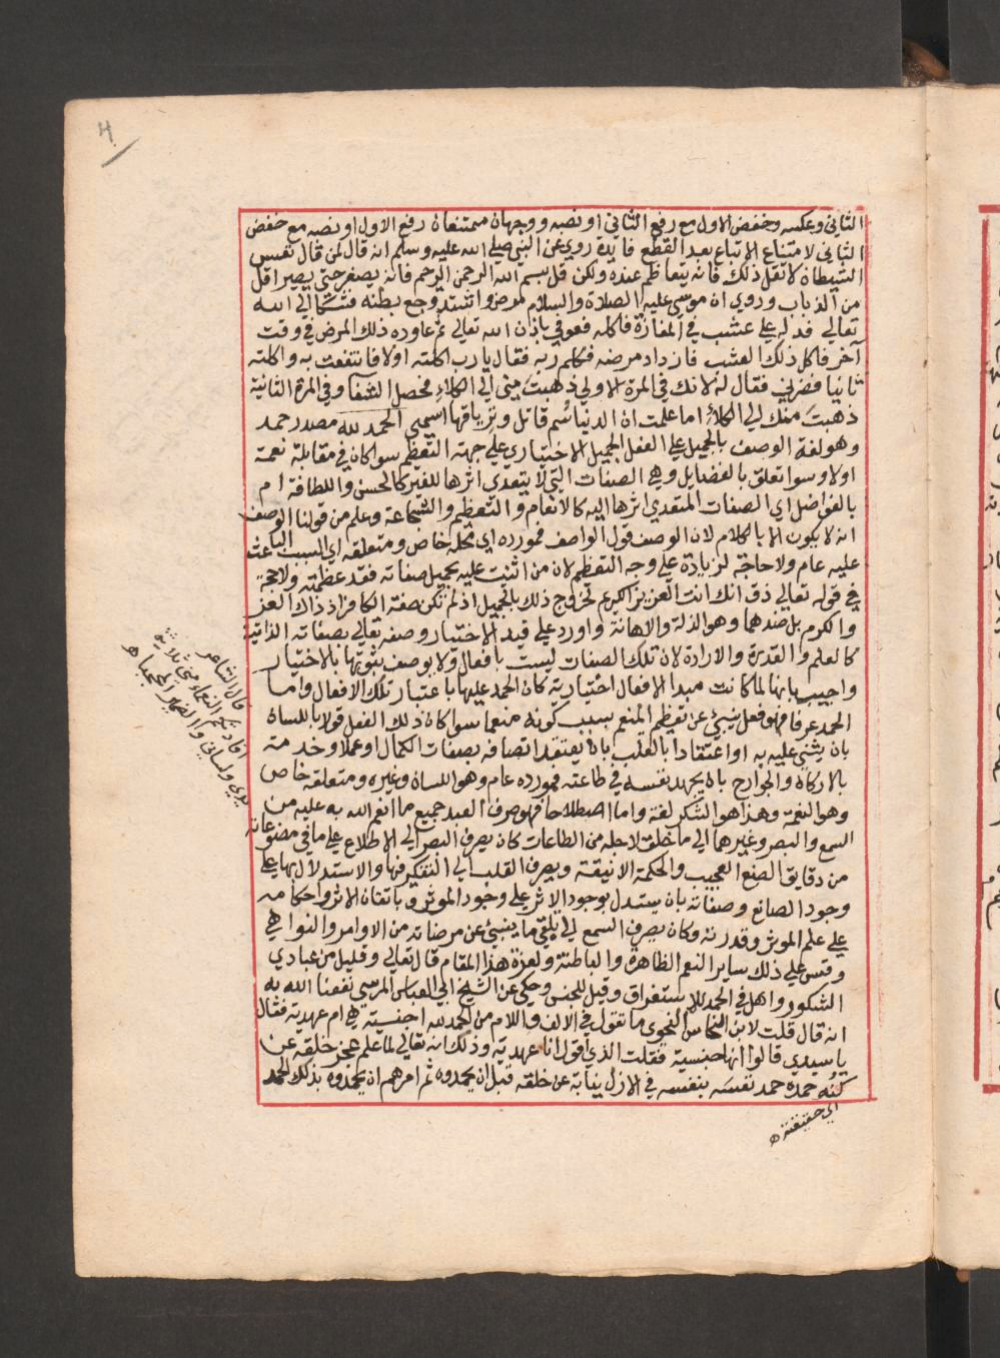 ٤
الثاني وعكسه وخفض الاول مع رفع الثاني او نصبه ووجهان ممتنعان رفع الاول او نصبه مع خفض
الثاني لامتناع الاتباع بعد القطع فايدة روي عن النبي صلى الله عليه وسلم انه قال لمن قال تعس
الشيطان لا تقل ذلك فانه يتعاظم عنده ولكن قل بسم الله الرحمن الرحيم فانه يصغر حتى يصير اقل
من الذباب وروي ان موسى عليه الصلاة والسلام مرض واشتد وجع بطنه فشكا الى الله
تعالى فدله على عشب في المفازة فاكله فعوفي باذن الله تعالى ثم عاوده ذلك المرض في وقت
آخر فاكل ذلك العشب فازداد مرضه فكلم ربه فقال يا رب اكلته اولا فانتفعت به واكلته
ثانيا فضرني فقال له لانك في المرة الاولى ذهبت مني الى الكلاء فحصل الشفا وفي المرة الثانية
ذهبت منك الى الكلاء اما علمت ان الدنيا سم قاتل وترياقها اسمي الحمد لله مصدر حمد
وهو لغة الوصف بالجميل على الفعل الجميل الاختياري على جهة التعظيم سوا كان في مقابلة نعمة
اولا وسوا تعلق بالفضايل وهي الصفات التي لا يتعدي اثرها للغير كالحسن واللطافة ام
بالفواضل اي الصفات المتعدي اثرها اليه كالانعام والتعظيم والشجاعة وعلم من قولنا الوصف
انه لا يكون الا بالكلام لان الوصف قول الواصف فمورده اي محله خاص ومتعلقه اي السبب الباعث
عليه عام ولا حاجة لزيادة على وجه التعظيم لان من اثنيت عليه بجميل صفاته فقد عظمته ولا حجة
في قوله تعالى ذق انك انت العزيز الكريم تخروج ذلك بالجميل اذ لم تكن صفة الكافر اذ ذاك العز
والكرم بل ضدهما وهو الذلة والاهانة واورد على قيد الاختيار وصفه تعالى بصفاته الذاتية
كالعلم والقدرة والارادة لان تلك الصفات ليست بافعال ولا يوصف بثبوتها بالاختيار
واجيب بانها لما كانت مبدا الافعال اختيارية كان الحمد عليها باعتبار تلك الافعال واما
الحمد عرفا فهو فعل ينبئ عن تعظيم المنعم بسبب كونه منعما سوا كان ذلك الفعل قولا باللسان
بان يثني عليه به او اعتقادا بالقلب بان يعتقد اتصافه بصفات الكمال او عملا وخدمة
بالاركان والجوارح بان يجهد نفسه في طاعته فمورده عام وهو اللسان وغيره ومتعلقه خاص
وهو النعمة وهذا هو الشكر لغة واما اصطلاحا فهو صرف العبد جميع ما انعم الله به عليه من
السمع والبصر وغيرهما الى ما خلق لاجله من الطاعات كان يصرف البصر الى الاطلاع على ما في مصنوعاته
من دقايق الصنع العجيب والحكمة الانيقة ويصرف القلب الى التفكر فيها والاستدلال بها على
وجود الصانع وصفاته بان يستدل بوجود الاثر على وجود الموثر وباتقان الاثر واحكامه
على علم الموثر وقدرته وكان يصرف السمع الى تلقي ما ينبئ عن مرضاته من الاوامر والنواهي
وقس على ذلك ساير النعم الظاهرة والباطنة ولعزة هذا المقام قال تعالى وقليل من عبادي
الشكور وال في الحمد للاستغراق وقيل للجنس وحكي عن الشيخ ابي العباس المرسي نفعنا الله به
انه قال قلت لابن النحاس النحوي ما تقول في الالف واللام من الحمد لله اجنسية هي ام عهدية فقال
يا سيدي قالوا انها جنسية فقلت الذي اقول انها عهدية وذلك انه تعالى لما علم عجز خلقه عن
كنه حمده حمد نفسه بنفسه في الازل نيابة عن خلقه قبل ان يحمدوه ثم امرهم ان يحمدوه بذلك الحمد
اي حقيقته ه
قال الشاعر
افادتكم النعماء مني ثلاثة
يدي ولساني والضمير المحجبا ه